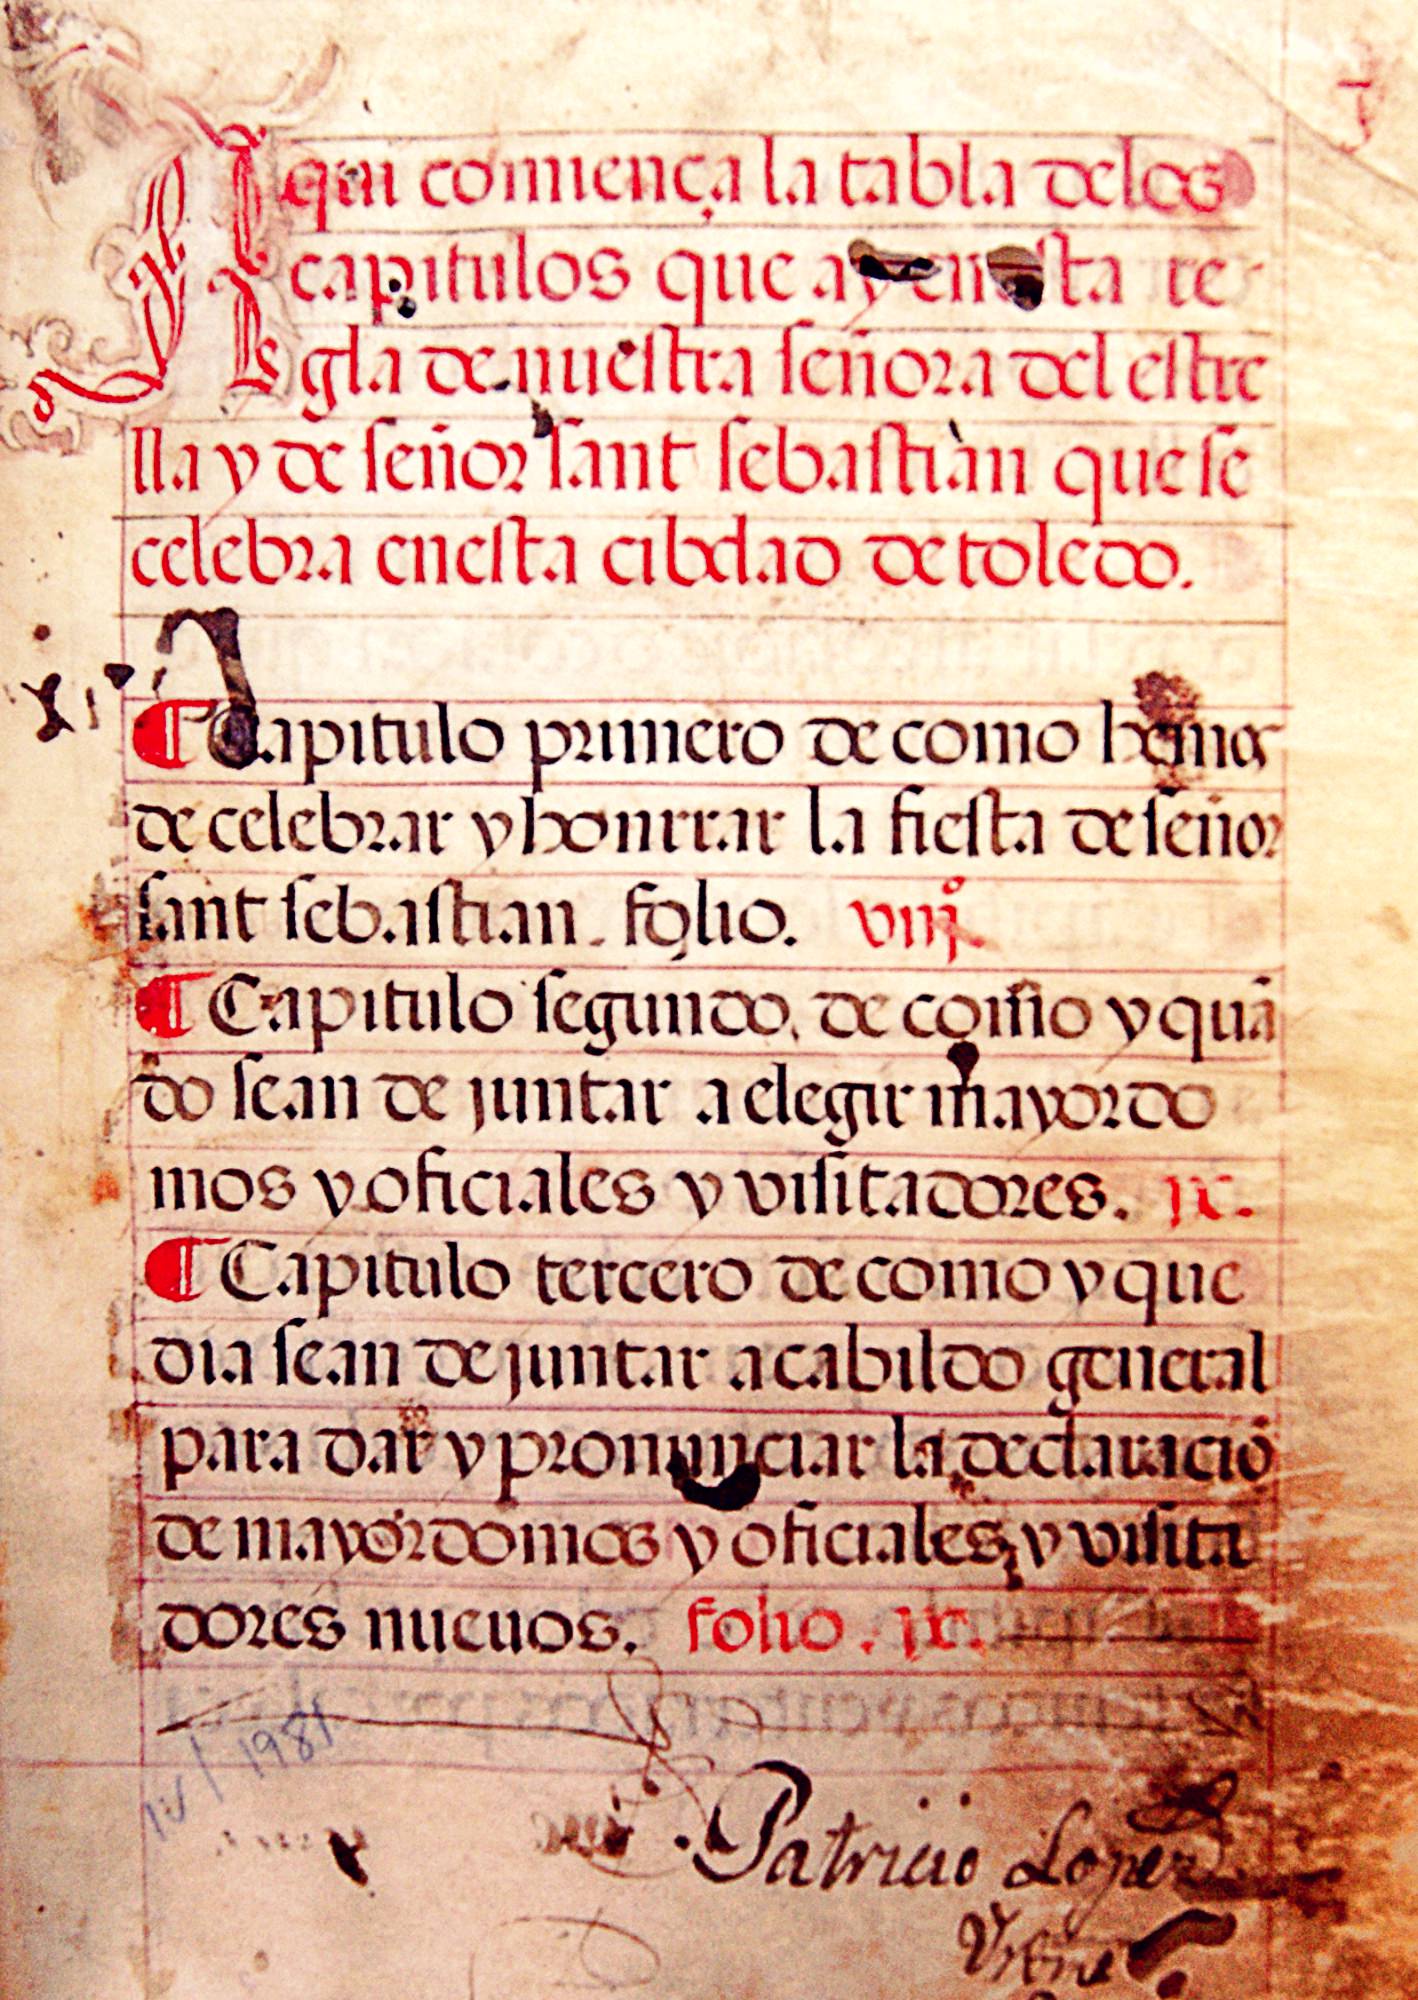 Aqui comiença la tabla delos
capitulos que ay enesta re
gla de nuestra señora del estre
lla y de señor sant sebastian que se
celebra enesta cibdad de toledo.
¶ Capitulo primero de como hemos
de celebrar y honrrar la fiesta de señor
sant sebastian. folio. viijº.
¶ Capitulo segundo. de como y quã
do sean de juntar a elegir mayordo
mos y oficiales y visitadores. ix.
¶ Capitulo tercero de como y que
dia sean de juntar a cabildo general
para dar y pronunciar la declaraciõ
de mayordomos y oficiales y visita
dores nueuos. folio. ix.
1981
Patricio Lopez